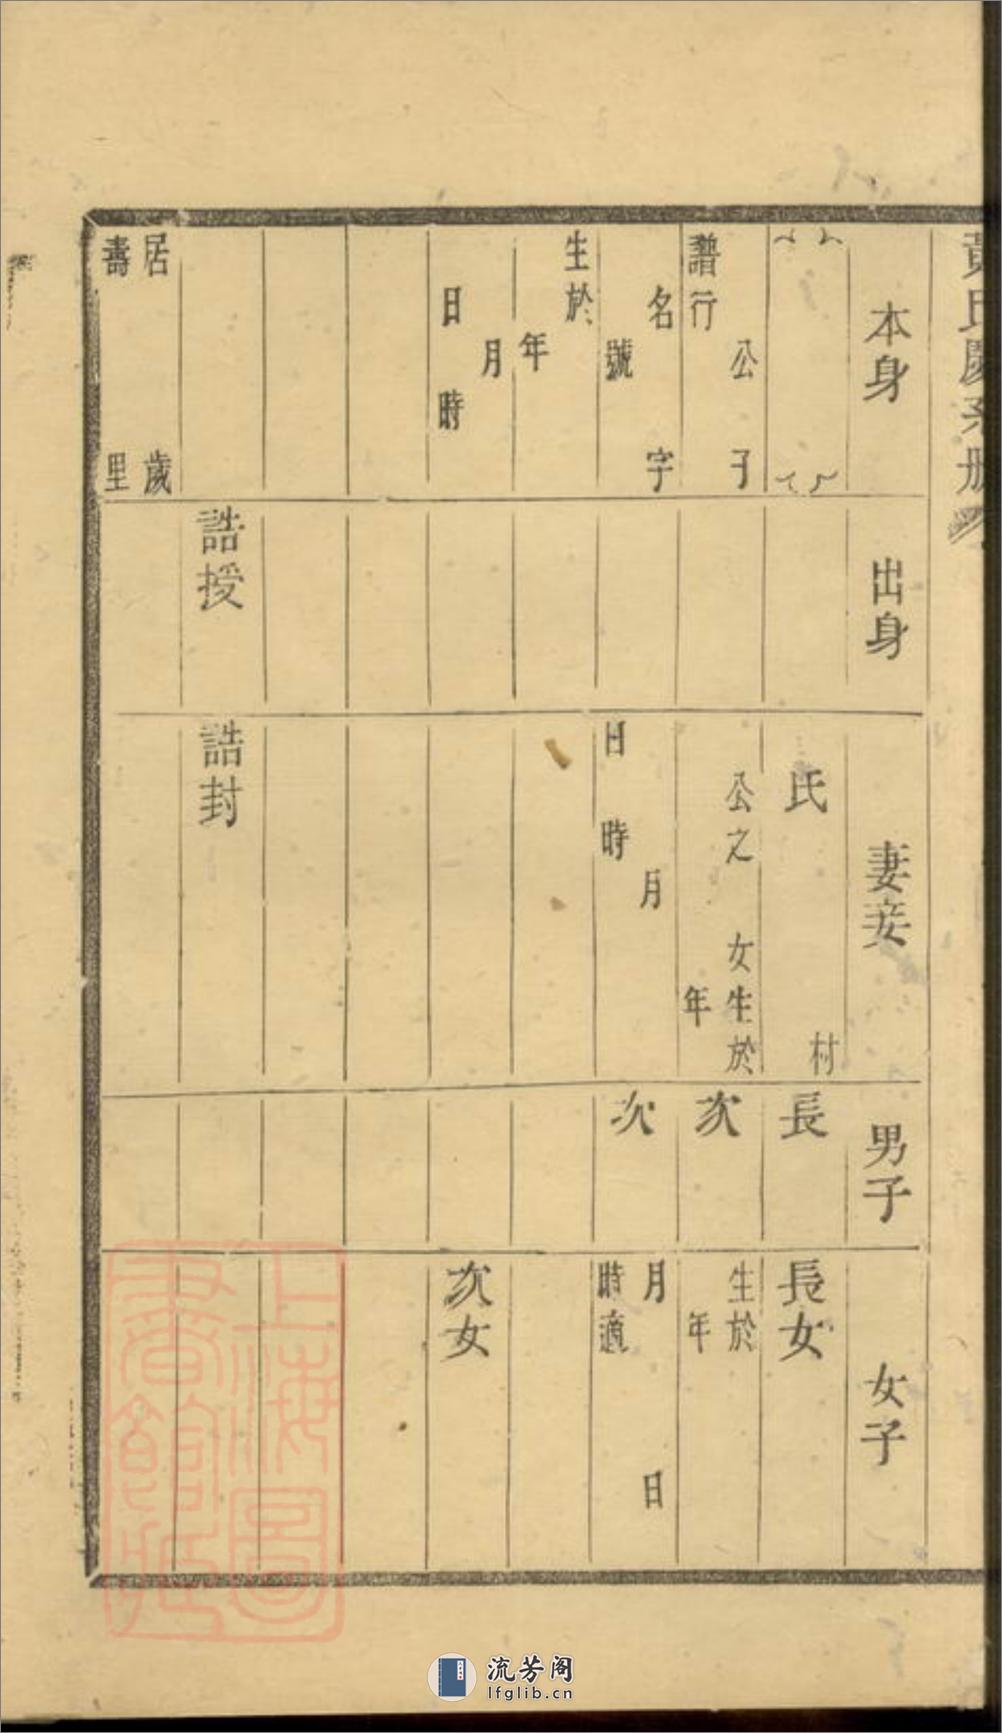 黄氏慶系册
本身
公 子
譜行
名 字
號
生於
年
月
日 時
居 歲
壽 里
出身
誥授
妻妾
氏 村
公之 女生於
年
月
日 時
誥封
男子
長
次
次
女子
長女
生於
年
月 日
時適
次女
上海圖
書館藏
流芳阁
lfglib.cn